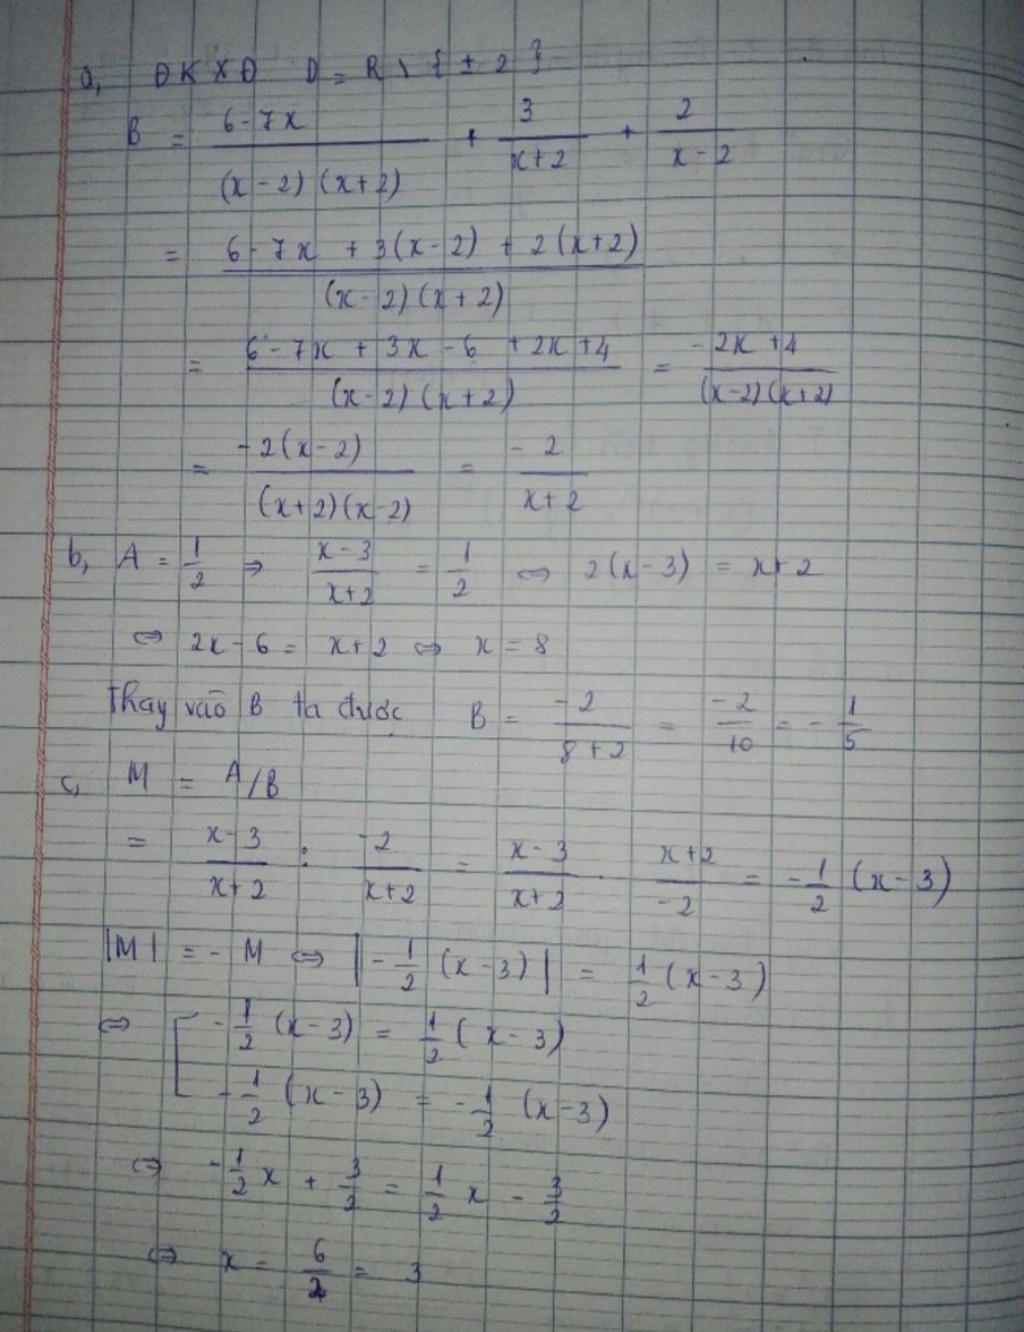 a, ĐKXĐ D = R \ { ± 2 }
B = (6 - 7x)/((x - 2)(x + 2)) + 3/(x + 2) + 2/(x - 2)
= (6 - 7x + 3(x - 2) + 2(x + 2))/((x - 2)(x + 2))
= (6 - 7x + 3x - 6 + 2x + 4)/((x - 2)(x + 2)) = (-2x + 4)/((x - 2)(x + 2))
= (-2(x - 2))/((x + 2)(x - 2)) = (-2)/(x + 2)
b, A = 1/2 ⇒ (x - 3)/(x + 2) = 1/2 ⇔ 2(x - 3) = x + 2
⇔ 2x - 6 = x + 2 ⇔ x = 8
Thay vào B ta được B = (-2)/(8 + 2) = (-2)/10 = - 1/5
c, M = A/B
= (x - 3)/(x + 2) : (-2)/(x + 2) = (x - 3)/(x + 2) . (x + 2)/(-2) = - 1/2 (x - 3)
|M| = - M ⇔ |- 1/2 (x - 3)| = 1/2 (x - 3)
⇔ [ - 1/2 (x - 3) = 1/2 (x - 3)
- 1/2 (x - 3) = - 1/2 (x - 3)
⇔ - 1/2 x + 3/2 = 1/2 x - 3/2
⇔ x = 6/2 = 3